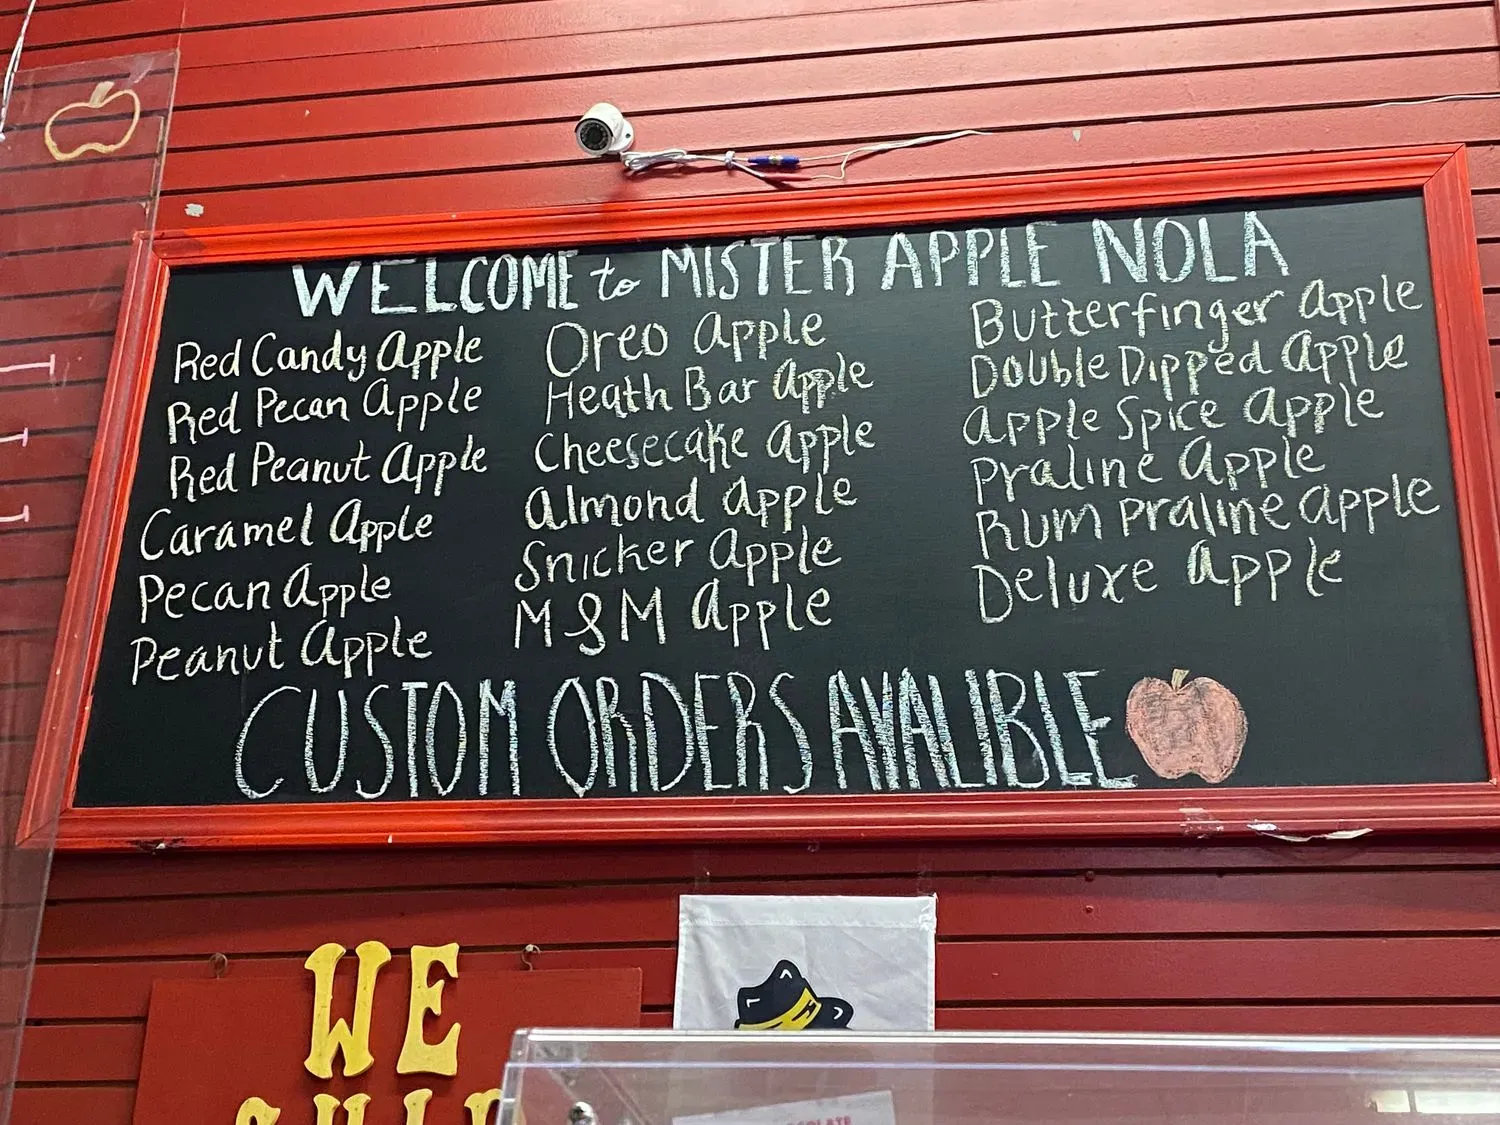 WELCOME to MISTER APPLE NOLA
Red Candy Apple
Red Pecan Apple
Red Peanut Apple
Caramel Apple
Pecan Apple
Peanut Apple
Oreo Apple
Heath Bar Apple
Cheesecake Apple
Almond Apple
Snicker Apple
M&M Apple
Butterfinger Apple
Double Dipped Apple
Apple Spice Apple
Praline Apple
Rum Praline Apple
Deluxe Apple
CUSTOM ORDERS AVALIBLE
WE
SHIP